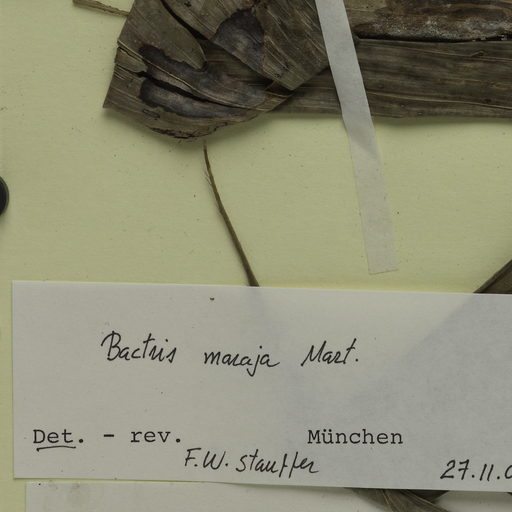 Bactris maraja Mart.
Det. - rev. München
F.W. Stauffer 27.11.0